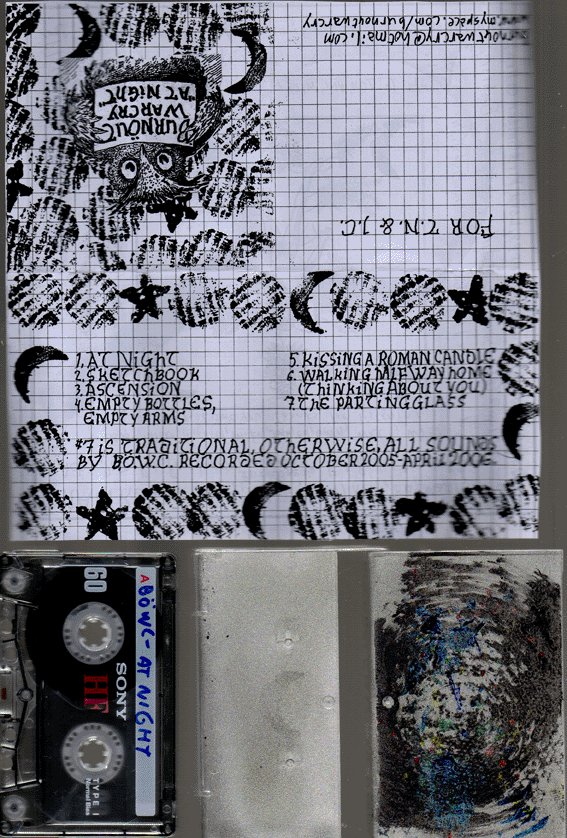 burnoutwarcry@hotmail.com
www.myspace.com/burnoutwarcry
BURNÖUT
WARCRY
"AT NIGHT"
FOR T.N. & J.C.
1. AT NIGHT
2. SKETCHBOOK
3. ASCENSION
4. EMPTY BOTTLES,
EMPTY ARMS
5. KISSING A ROMAN CANDLE
6. WALKING MIFWAY HOME
(THINKING ABOUT YOU)
7. THE PARTING GLASS
#7 IS TRADITIONAL, OTHERWISE, ALL SOUNDS
BY BÖ.W.C. RECORDED OCTOBER 2005-APRIL 2006.
A
BÖWC - AT NIGHT
60
SONY
HF
TYPE I
Normal Bias